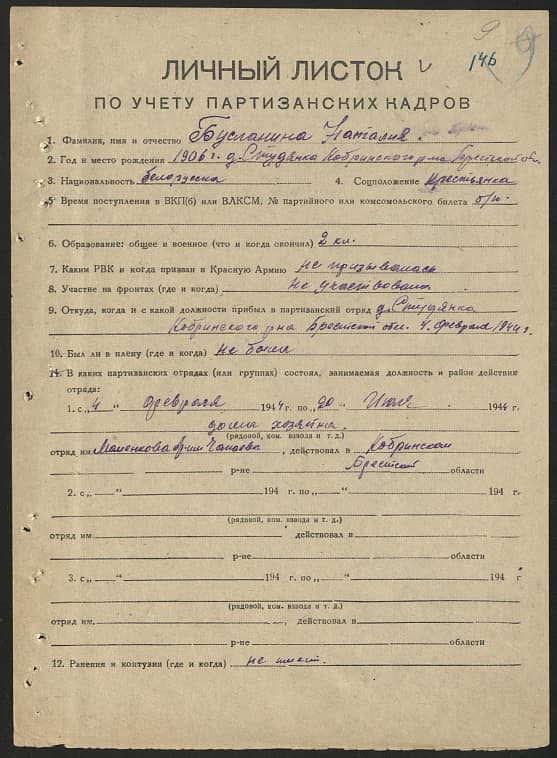 9
146
ЛИЧНЫЙ ЛИСТОК
ПО УЧЕТУ ПАРТИЗАНСКИХ КАДРОВ
1. Фамилия, имя и отчество Наталия
2. Год и место рождения 1906 г. д. Студянка Кобринского р-на Брестской обл.
3. Национальность белорусска 4. Соцположение крестьянка
5. Время поступления в ВКП(б) или ВЛКСМ, № партийного или комсомольского билета б/п.
6. Образование: общее и военное (что и когда окончил) 2 кл.
7. Каким РВК и когда призван в Красную Армию не призывалась
8. Участие на фронтах (где и когда) не участвовала
9. Откуда, когда и с какой должности прибыл в партизанский отряд д. Студянка
Кобринского р-на Брестской обл. 4 февраля 1944 г.
10. Был ли в плену (где и когда) не была
11. В каких партизанских отрядах (или группах) состоял, занимаемая должность и район действия
отряда:
1. с „4 “ февраля 1944 г. по „20 “ Июля 1944 г.
дома хозяйка
(рядовой, ком. взвода и т. д.)
отряд им Чапаева, действовал в Кобринском
р-не Брестской области
2. с „ “ 194 г. по „ “ 194 г.
(рядовой, ком. взвода и т. д.)
отряд им действовал в
р-не области
3. с „ “ 194 г. по „ “ 194 г
(рядовой, ком. взвода и т. д.)
отряд им. , действовал в
р-не области
12. Ранения и контузии (где и когда) не имеет.